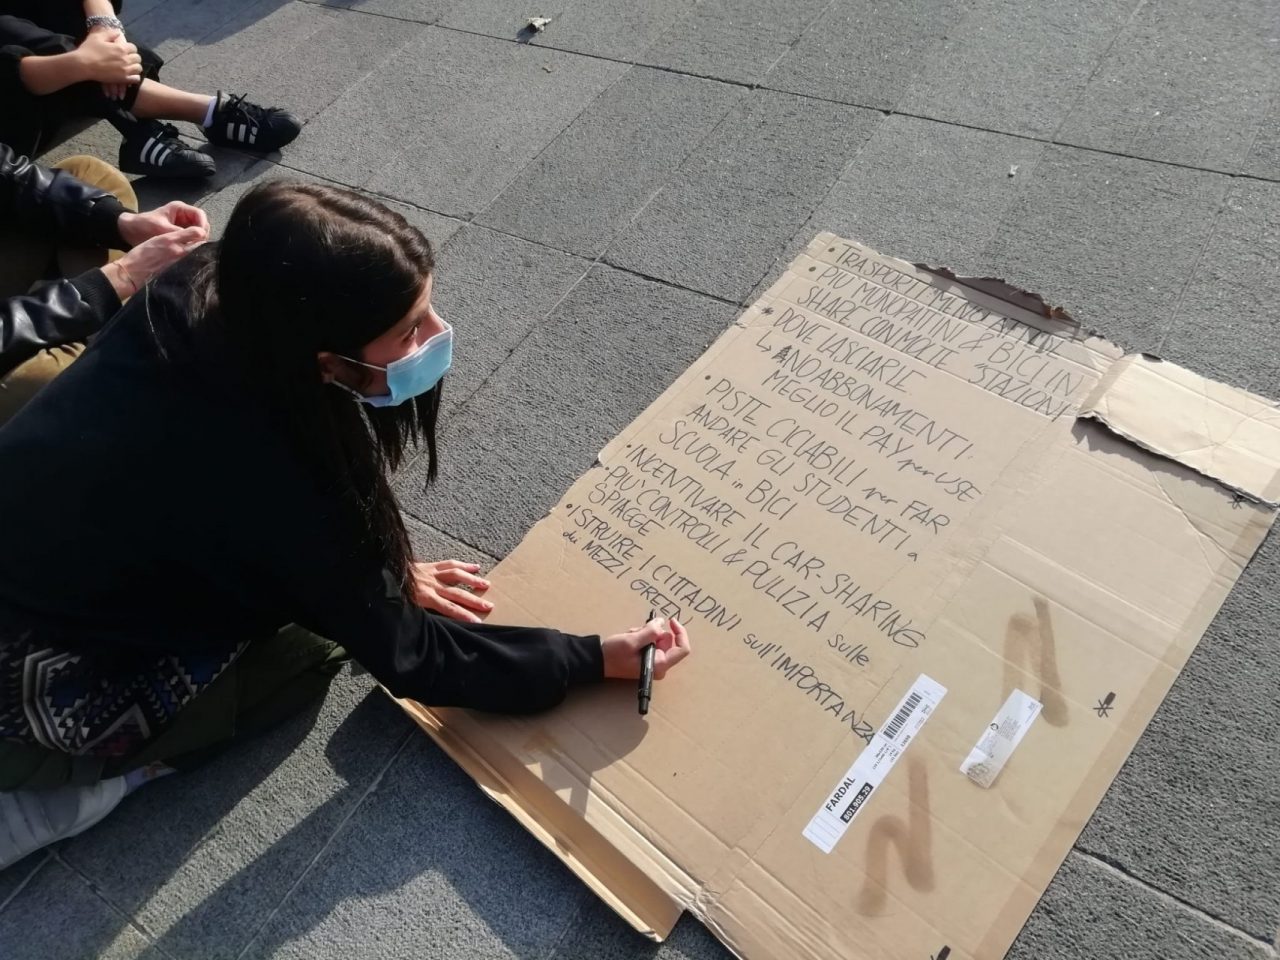 • TRASPORTI MENO ATTIVI
• PIÙ MONOPATTINI & BICI IN
SHARE CON MOLTE "STAZIONI"
* DOVE LASCIARLE
↳ NO ABBONAMENTI.
MEGLIO IL PAY per USE
• PISTE CICLABILI per FAR
ANDARE GLI STUDENTI a
SCUOLA in BICI
• INCENTIVARE IL CAR-SHARING
• PIÙ CONTROLLI & PULIZIA sulle
SPIAGGE
• ISTRUIRE I CITTADINI sull'IMPORTANZA
dei MEZZI GREEN
FARDAL
801.905.29